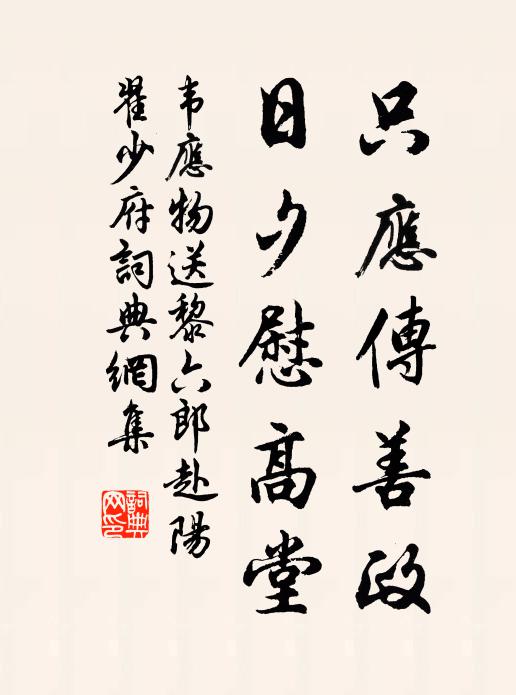 只應傳善政
日夕慰高堂
韦應物送黎六郎赴陽
翟少府詞典網集
詞典网印